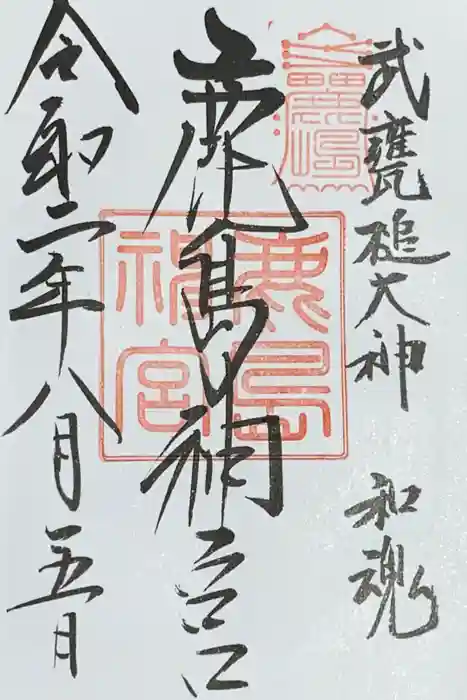 武甕槌大神 和魂
鹿島祠宮
鹿島
祠宮
令和二年八月五日